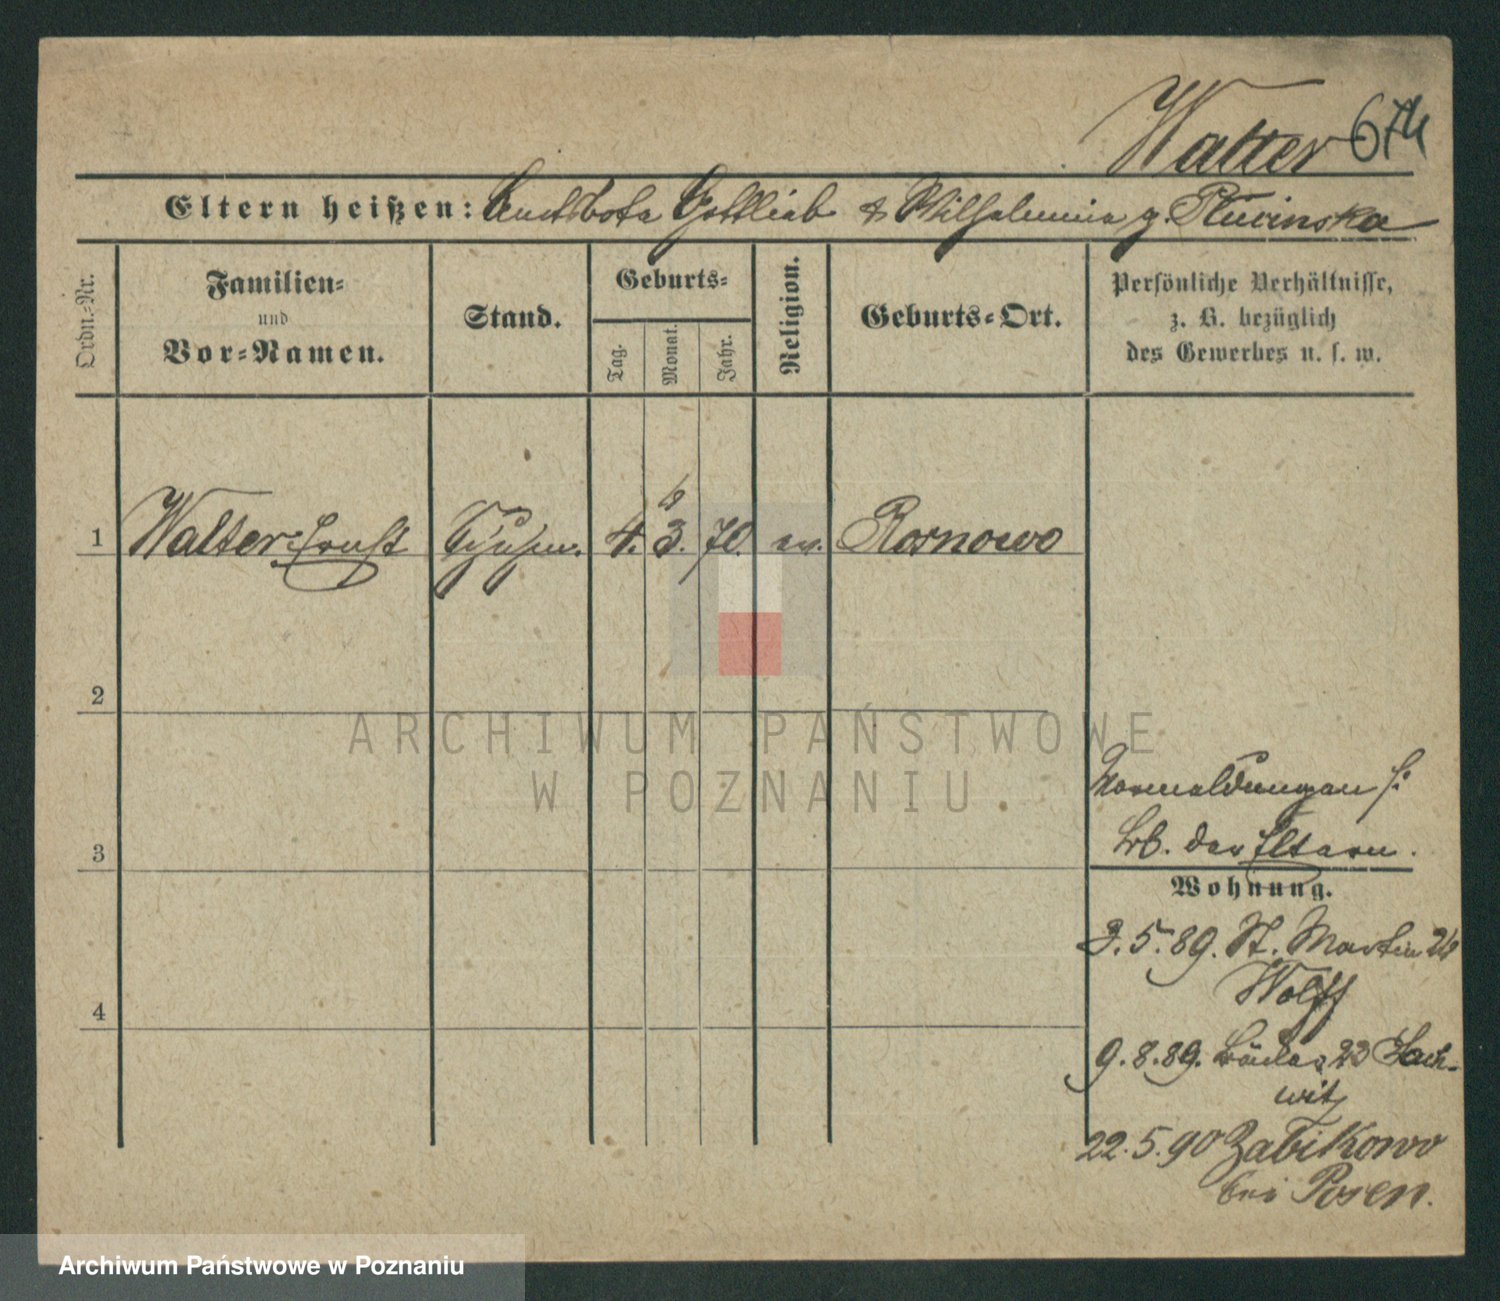 Walter 674
Eltern heißen: Amtsbote Gottlieb & Wilhelmine g. Plucinska
Ordn.-Nr.
Familien-
und
Vor-Namen.
Stand.
Geburts-
Tag.
Monat.
Jahr.
Religion.
Geburts-Ort.
Persönliche Verhältnisse,
z. B. bezüglich
des Gewerbes u. s. w.
1 Walter Ernst Schuhm. 4. 3. 70. ev. Rosnowo
2
3
4
Vormeldungen s.
bb. der Eltern.
Wohnung.
3.5.89. St. Martin
Wolff
9.8.89. Bäcker 23 Lach-
witz
22.5.90 Zabikowo
bei Posen.
ARCHIWUM PAŃSTWOWE
W POZNANIU
Archiwum Państwowe w Poznaniu